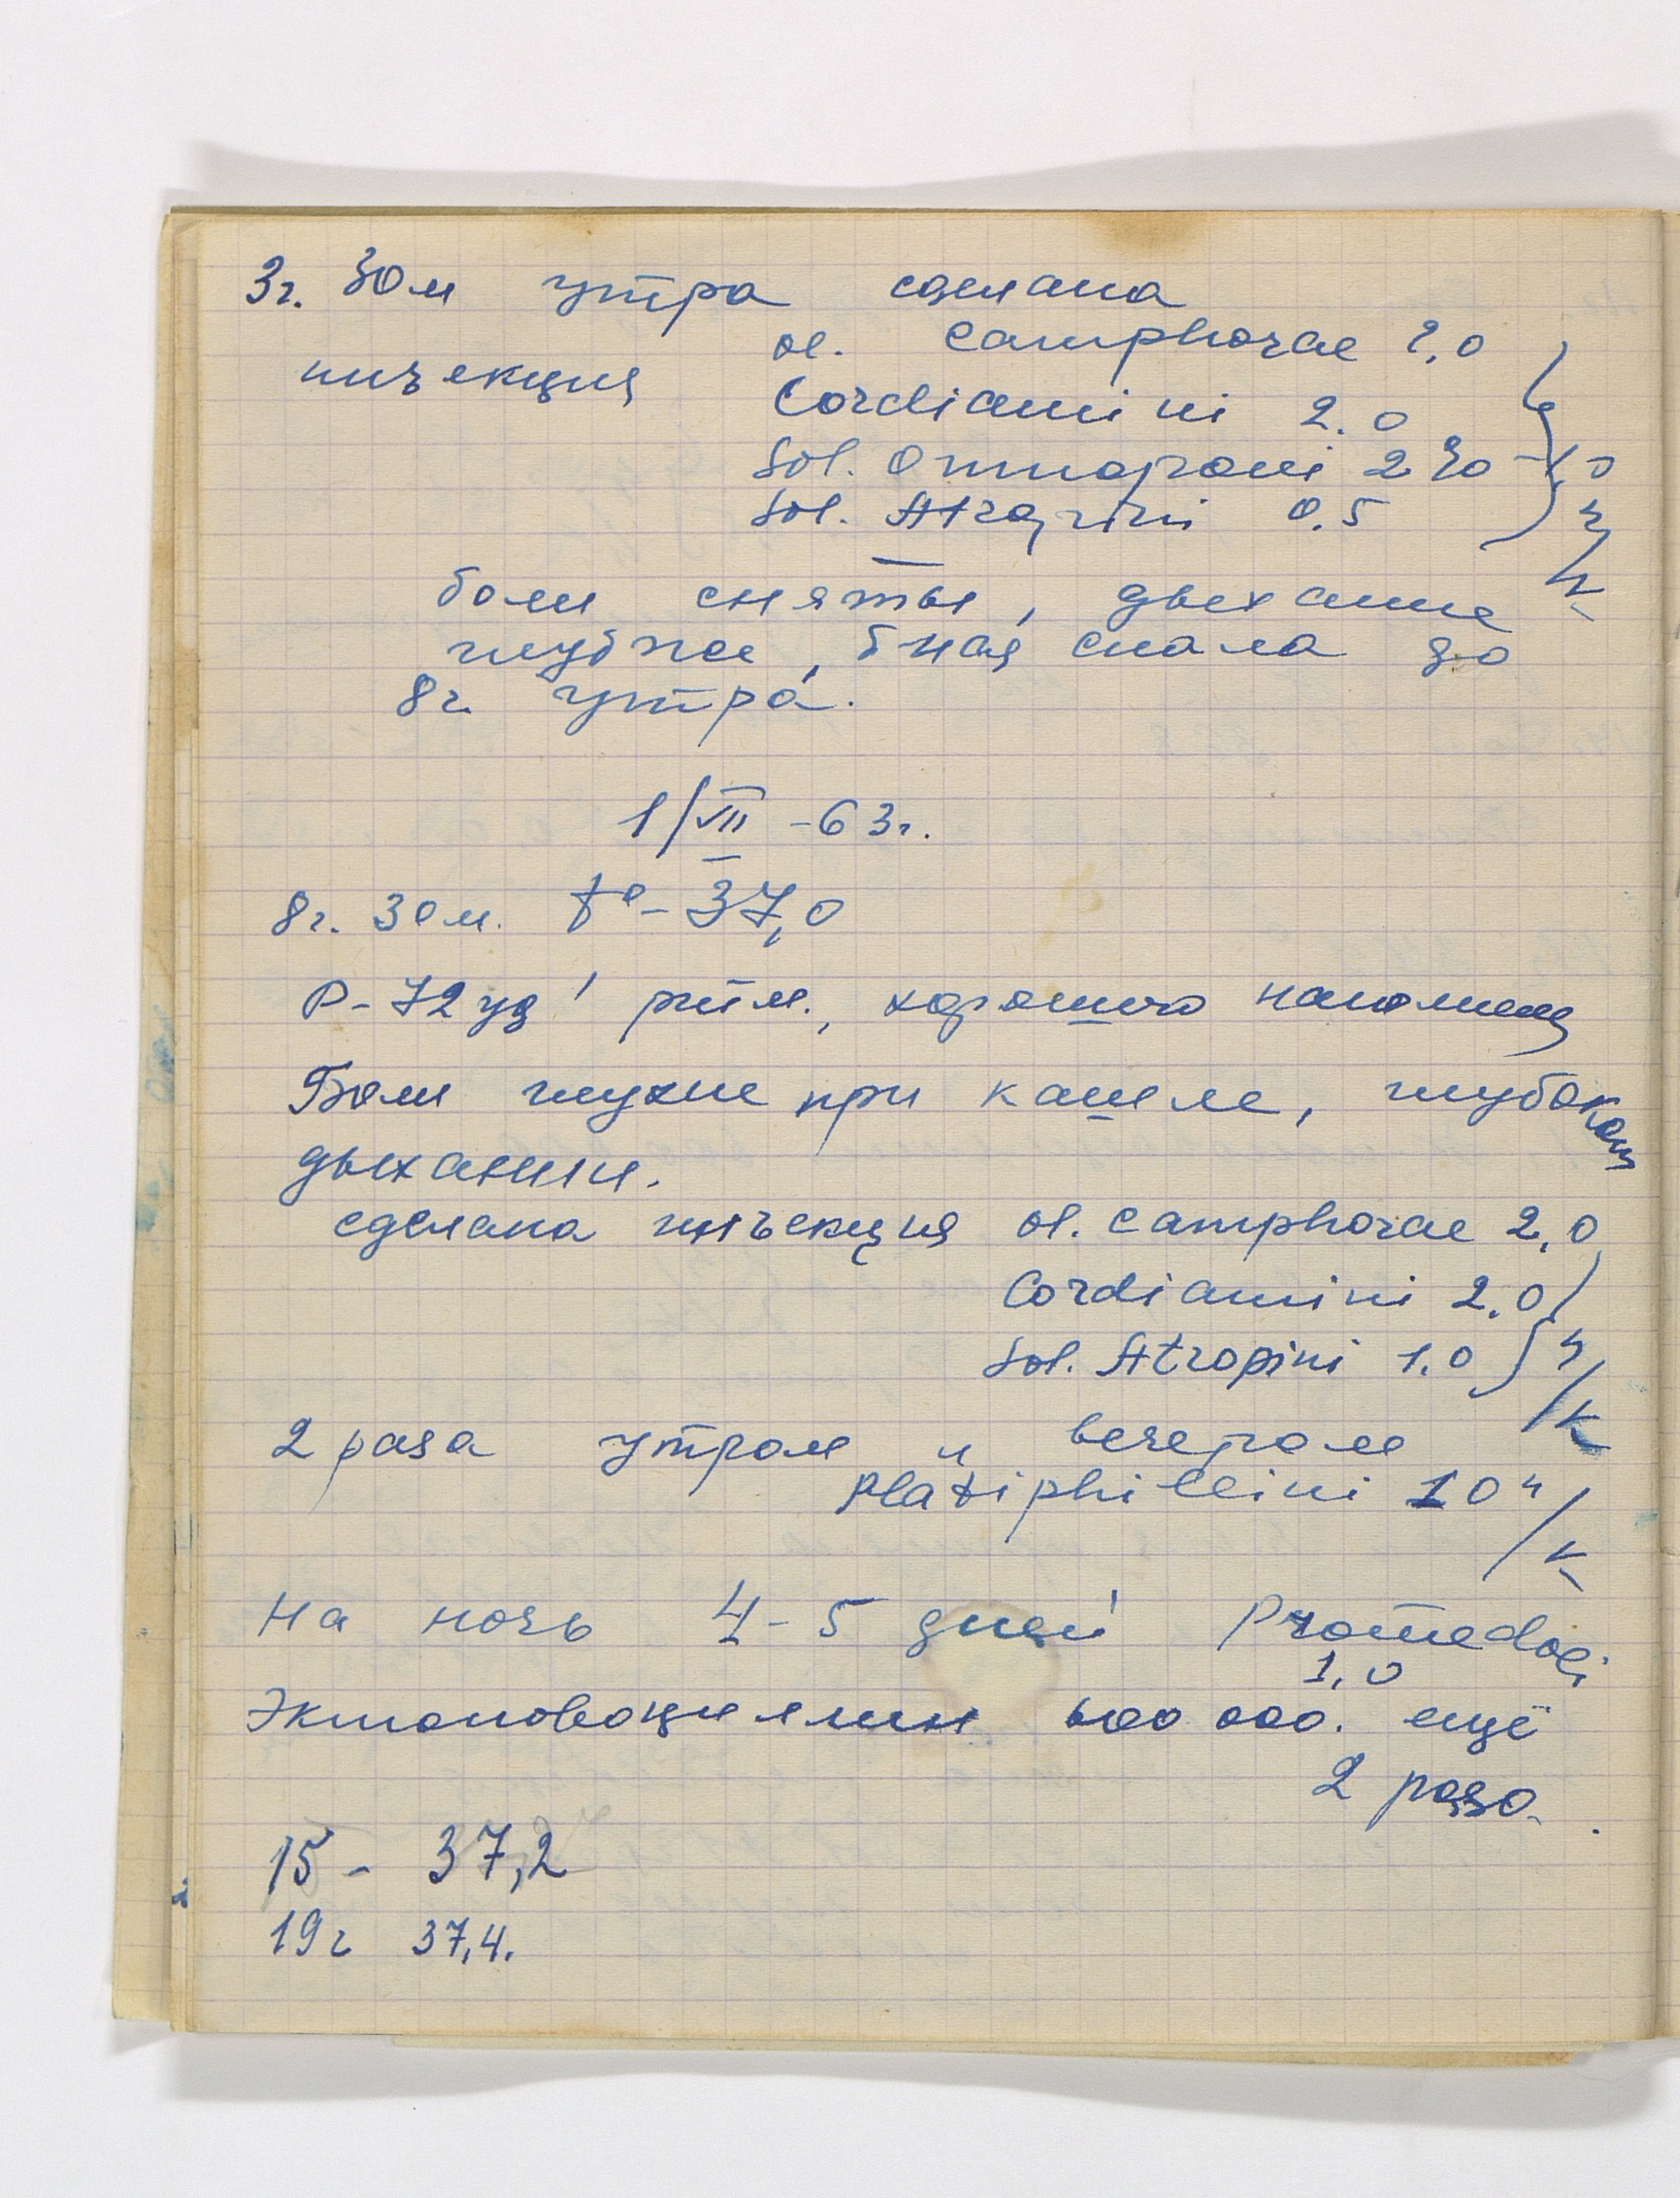 3г. 30м утра сделана
инъекция ol. Camphorae 2,0
Cordiamini 2.0
Sol. Omnoponi 2%-1,0
Sol. Atropini 0.5 п/к
боли сняты, дыхание
глубже, б-ная спала до
8г. утра.
1/VII-63г.
8г. 30м. t°-37,0
P-72 уд' ритм., хорошего наполнения
Боли глухие при кашле, глубоком
дыхании.
сделана инъекция ol. camphorae 2,0
Cordiamini 2.0
Sol. Atropini 1.0 п/к
2 раза утром и вечером
Platiphillini 1 0 п/к
На ночь 4-5 дней Promedoli
1,0
Экмоновоциллин 600 000. ещё
2 раза.
15- 37,2
19г 37,4.